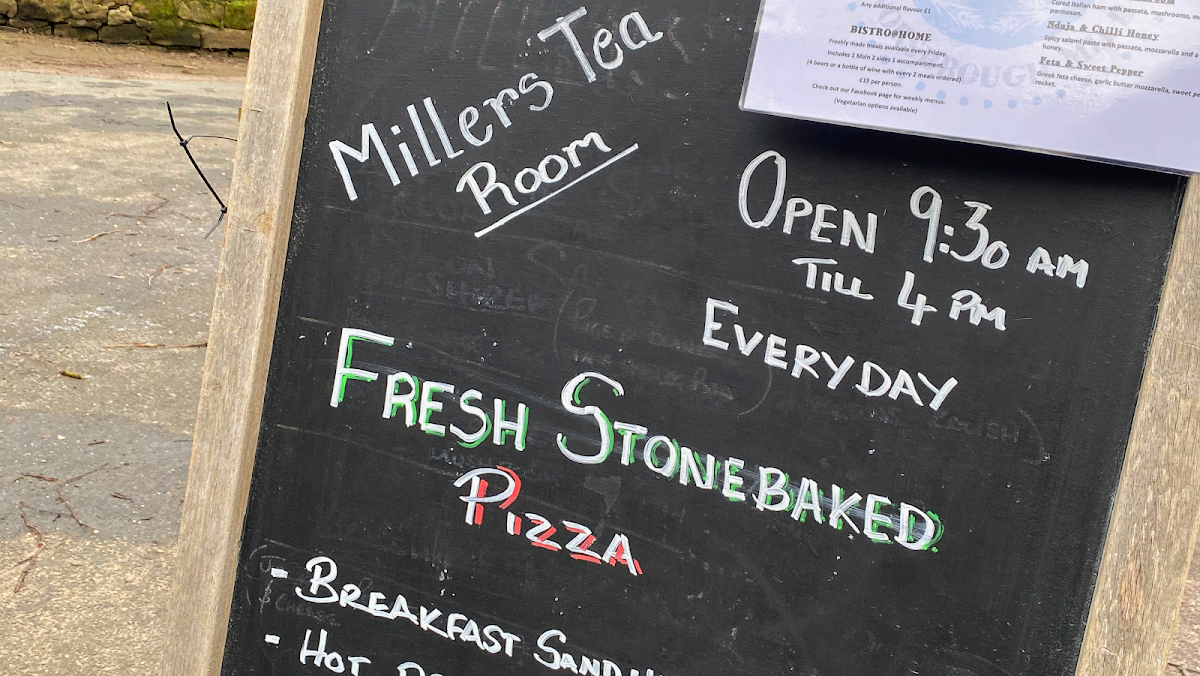 Any additional flavour £1
BISTRO@HOME
Freshly made meals available every Friday.
Includes 1 Main 2 sides 1 accompaniment.
(4 beers or a bottle of wine with every 2 meals ordered)
£15 per person.
Check out our Facebook page for weekly menus.
(Vegetarian options available)
Cured Italian ham with passata, mushrooms,
parmesan.
Nduja & Chilli Honey
Spicy salami paste with passata, mozzarella and
honey.
Feta & Sweet Pepper
Greek feta cheese, garlic butter mozzarella, sweet
rocket.
Millers Tea
Room
OPEN 9:30 AM
TILL 4 PM
EVERYDAY
FRESH STONEBAKED
PIZZA
- BREAKFAST
- HOT